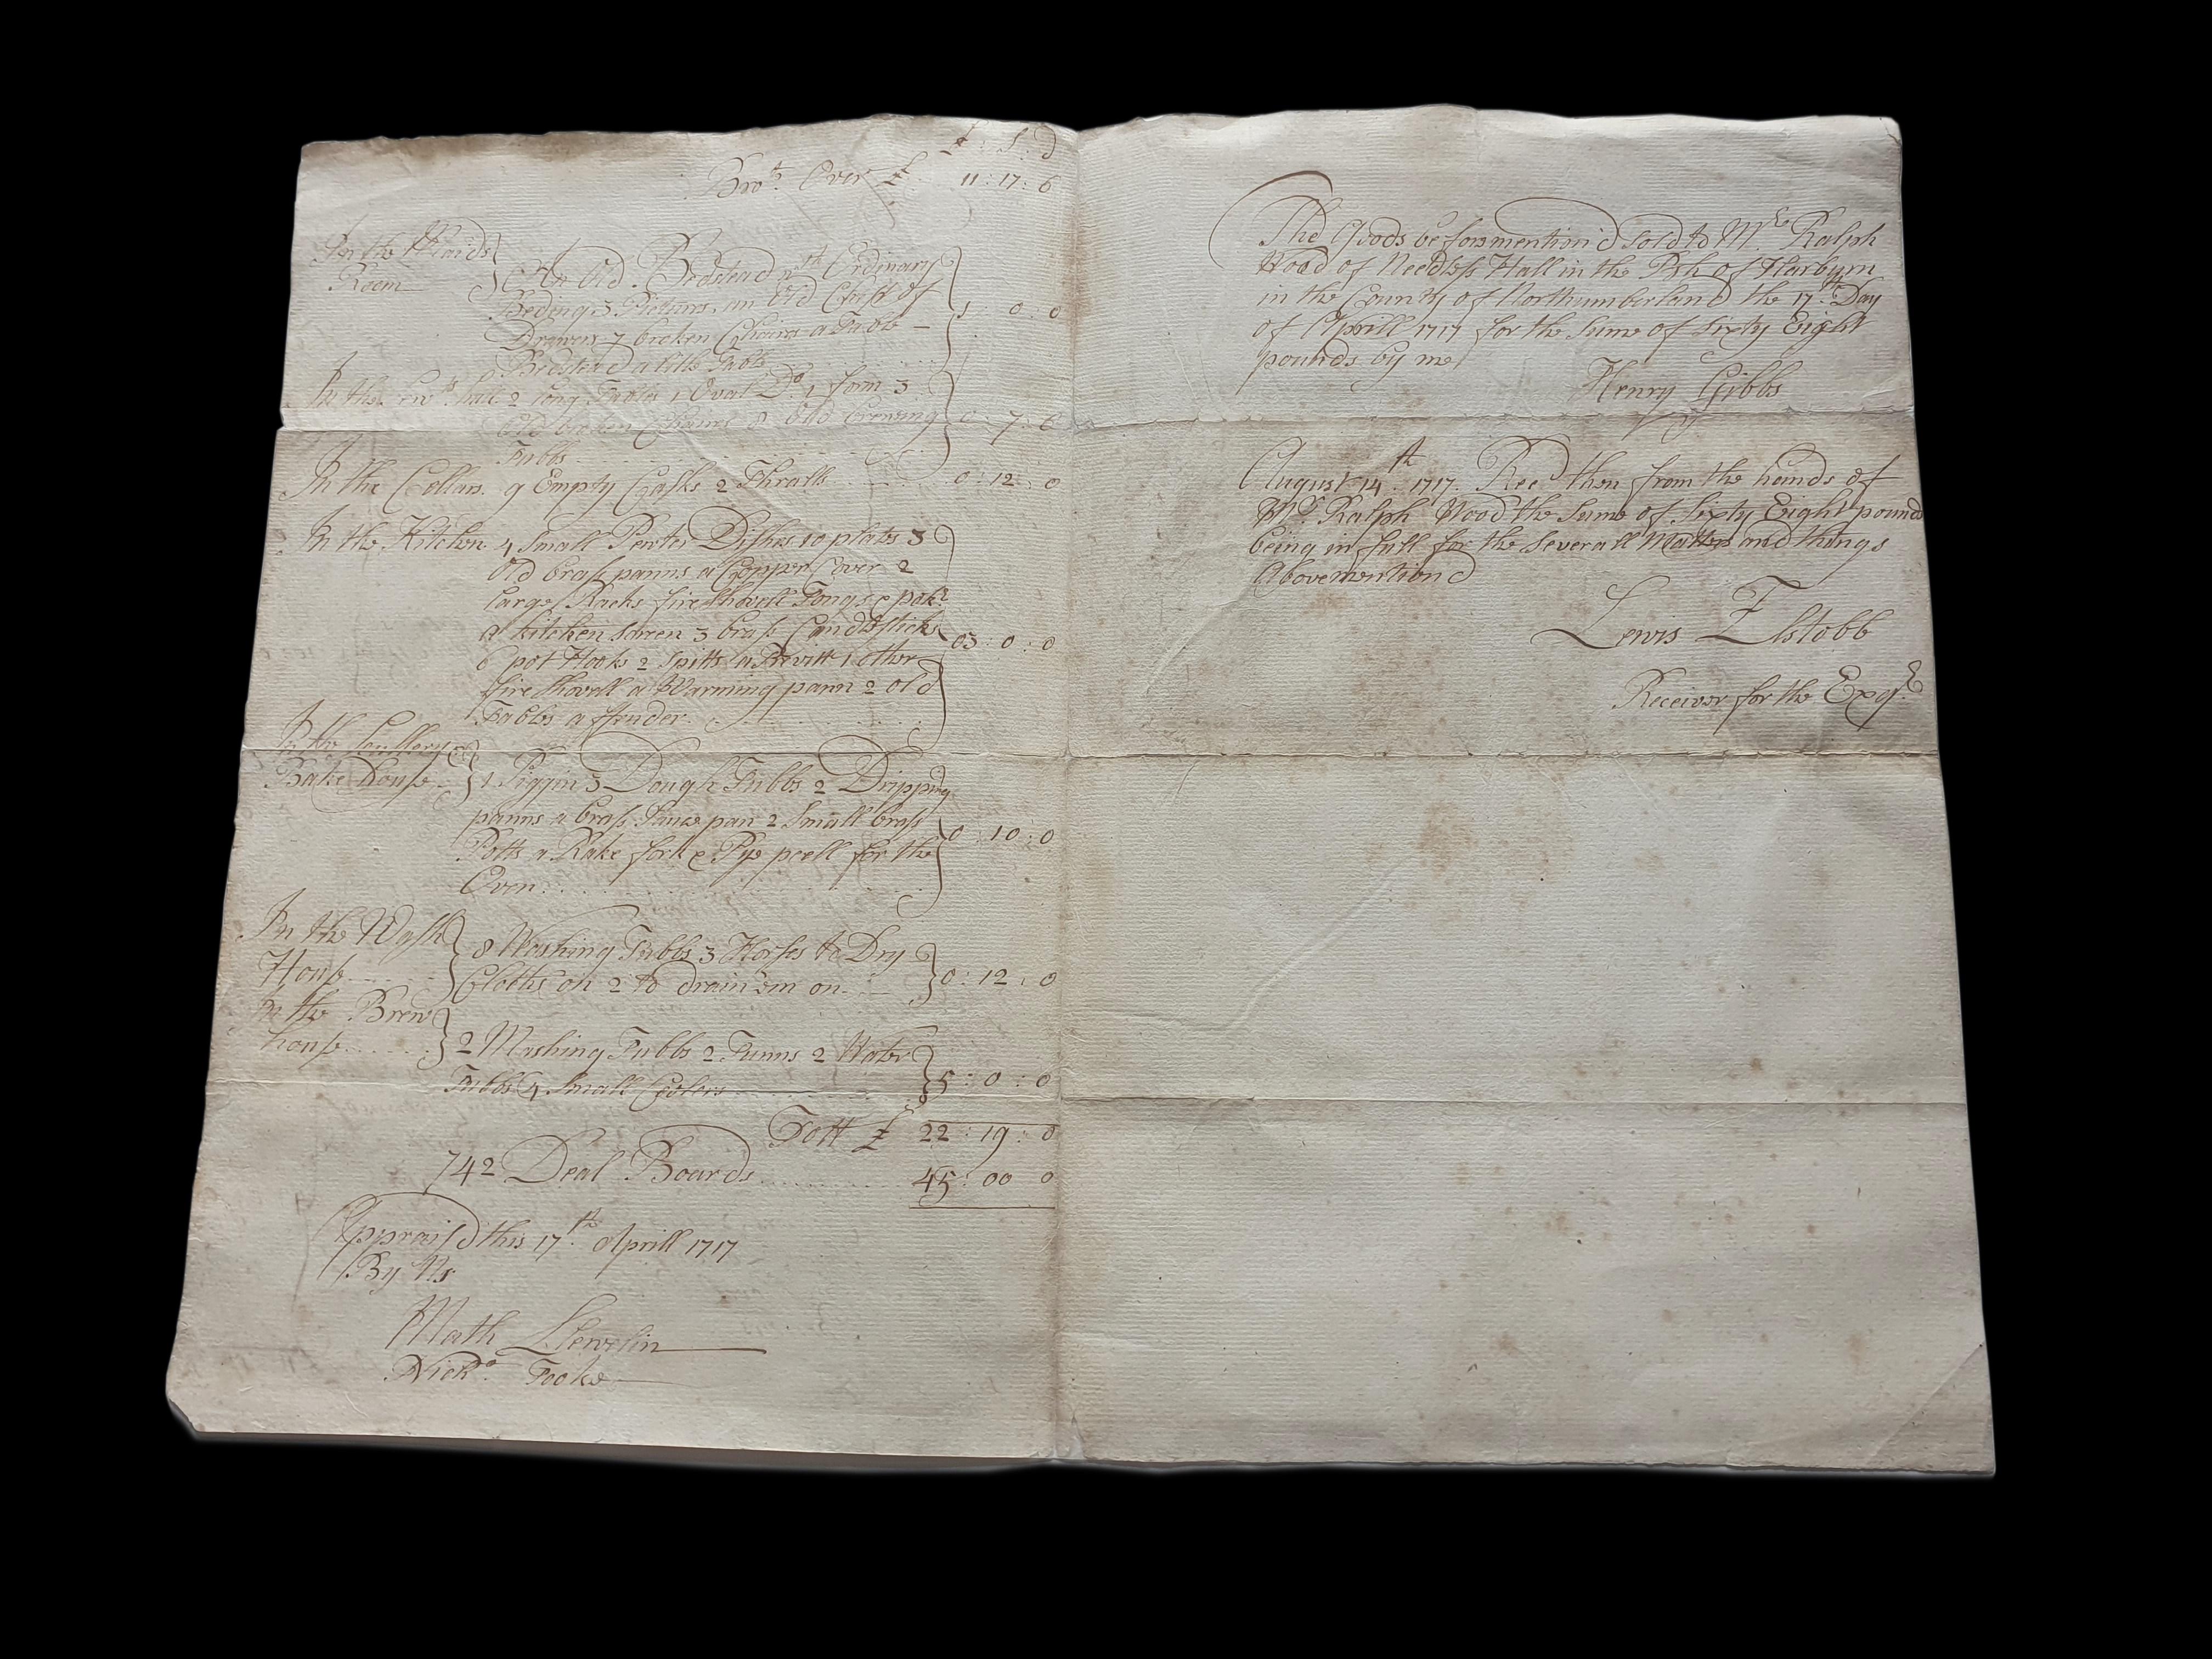 £ : S : D
Bro.t Over £ 11 : 17 : 6
In the Maids
Room
An Old Bedstead wth Ordinary
Beding 3 Pictures, an Old Chest of
Drawers 7 broken Chairs a Table 1 : 0 : 0
Bedstead a little Table
In the Servts hall 2 long Tables 1 Oval Do 1 form 3
Old broken Chairs 8 Old brewing 0 : 7 : 6
Tubbs
In the Cellars. 9 Empty Casks 2 Thralls 0 : 12 : 0
In the Kitchen 4 Small Pewter Dishes 10 plates 3
Old brass panns a Copper Cover 2
large Racks fire shovell Tongs & pokr
a kitchen screen 3 brass Candlesticks 03 : 0 : 0
6 pot Hooks 2 spitts a Trevitt 1 other
fire shovell a Warming pann 2 old
Tables a ffender
In the Scullery &
Bake house 1 Piggin 3 Dough Tubbs 2 Dripping
panns a brass Sauce pan 2 Small brass 0 : 10 : 0
Potts a Rake fork & peell for the
Oven
In the Wash
House
8 Washing Tubbs 3 Horses to Dry
Cloths on 2 to drain 'em on 0 : 12 : 0
In the Brew
house
2 Mashing Tubbs 2 Tunns 2 Water
Tubbs 4 Small Coolers 5 : 0 : 0
Tott £ 22 : 19 : 0
742 Deal Boards 45 : 00 0
Apprais'd this 17th Aprill 1717
By Us
Math Llewelin
Nicho Tooke
The Goods beforemention'd sold to Mr Ralph
Wood of Needless Hall in the Psh of Harburn
in the County of Northumberland the 17th Day
of Aprill 1717 for the Sume of Sixty Eight
pounds by me
Henry Gibbs
August 14th 1717. Recd then from the hands of
Mr Ralph Wood the Sume of Sixty Eight pounds
being in full for the Severall Matters and things
Abovemention'd
Lewis Elstobb
Receiver for the